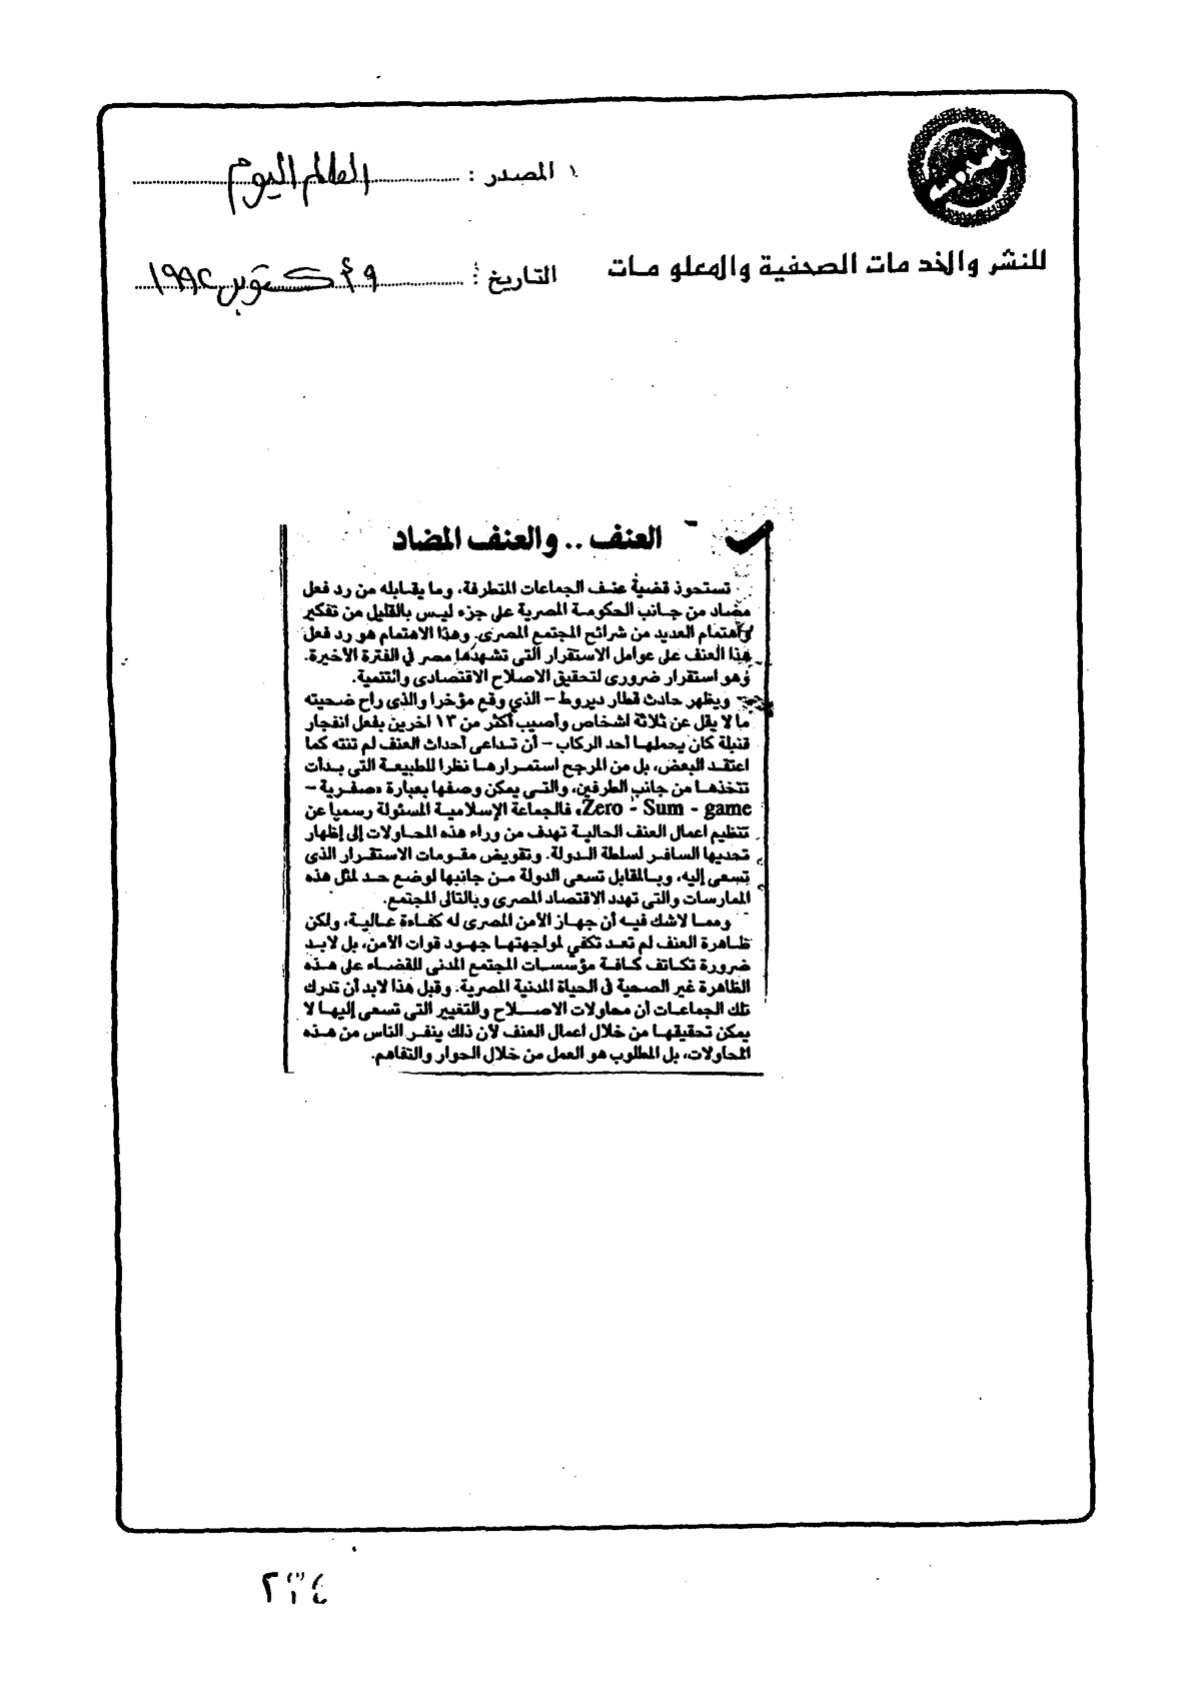 المصدر : العالم اليوم
للنشر والخدمات الصحفية والمعلومات
التاريخ : ٩ أكتوبر ١٩٩٢
العنف .. والعنف المضاد
تستحوذ قضية عنف الجماعات المتطرفة، وما يقابله من رد فعل
مضاد من جانب الحكومة المصرية على جزء ليس بالقليل من تفكير
واهتمام العديد من شرائح المجتمع المصرى. وهذا الاهتمام هو رد فعل
هذا العنف على عوامل الاستقرار التى تشهدها مصر في الفترة الأخيرة.
وهو استقرار ضرورى لتحقيق الاصلاح الاقتصادى والتنمية.
ويظهر حادث قطار ديروط - الذي وقع مؤخرا والذى راح ضحيته
ما لا يقل عن ثلاثة اشخاص وأصيب أكثر من ١٣ اخرين بفعل انفجار
قنبلة كان يحملها أحد الركاب - أن تداعى أحداث العنف لم تنته كما
اعتقد البعض، بل من المرجح استمرارها نظرا للطبيعة التى بدأت
تتخذها من جانب الطرفين، والتى يمكن وصفها بعبارة «صفرية -
Zero - Sum - game» فالجماعة الإسلامية المسئولة رسميا عن
تنظيم اعمال العنف الحالية تهدف من وراء هذه المحاولات إلى إظهار
تحديها السافر لسلطة الدولة. وتقويض مقومات الاستقرار الذى
تسعى إليه، وبالمقابل تسعى الدولة من جانبها لوضع حد لمثل هذه
الممارسات والتى تهدد الاقتصاد المصرى وبالتالى المجتمع.
ومما لاشك فيه أن جهاز الأمن المصرى له كفاءة عالية، ولكن
ظاهرة العنف لم تعد تكفي لمواجهتها جهود قوات الأمن، بل لابد
ضرورة تكاتف كافة مؤسسات المجتمع المدنى للقضاء على هذه
الظاهرة غير الصحية في الحياة المدنية المصرية. وقبل هذا لابد أن تدرك
تلك الجماعات أن محاولات الاصلاح والتغيير التى تسعى إليها لا
يمكن تحقيقها من خلال اعمال العنف لأن ذلك ينفر الناس من هذه
المحاولات، بل المطلوب هو العمل من خلال الحوار والتفاهم.